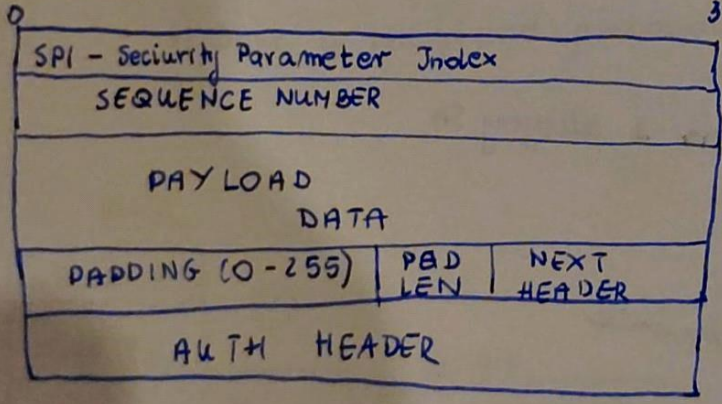 0 3
SPI - Seciurity Parameter Index
SEQUENCE NUMBER
PAYLOAD
DATA
PADDING (0-255) PAD NEXT
LEN HEADER
AUTH HEADER